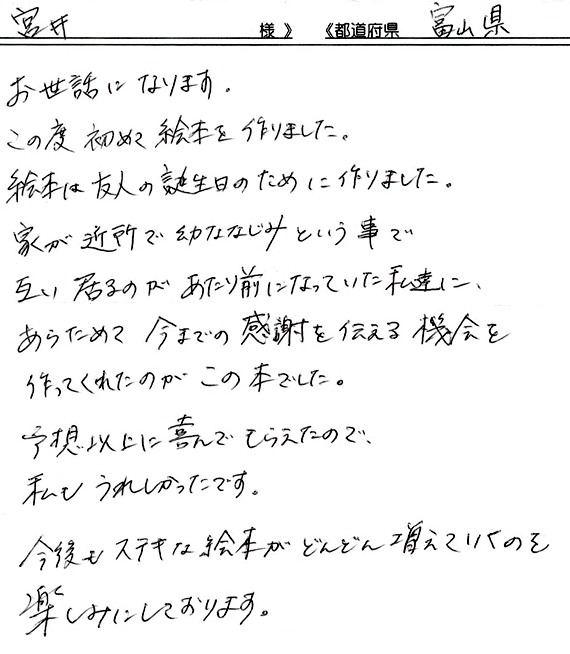 宮井 様 》 《都道府県 富山県
お世話になります。
この度 初めて 絵本を 作りました。
絵本は 友人の 誕生日のために作りました。
家が 近所で 幼ななじみ という 事で
互い 居るのが あたり前になっていた私達に、
あらためて 今までの 感謝を 伝える 機会を
作ってくれたのが この 本でした。
予想以上に 喜んで もらえたので、
私も うれしかったです。
今後も ステキな 絵本が どんどん 増えていくのを
楽しみにしております。